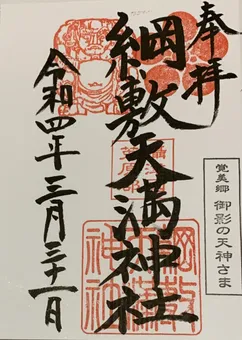 奉拝
覚美郷 御影の天神さま
綱敷天満神社
令和四年三月三十一日